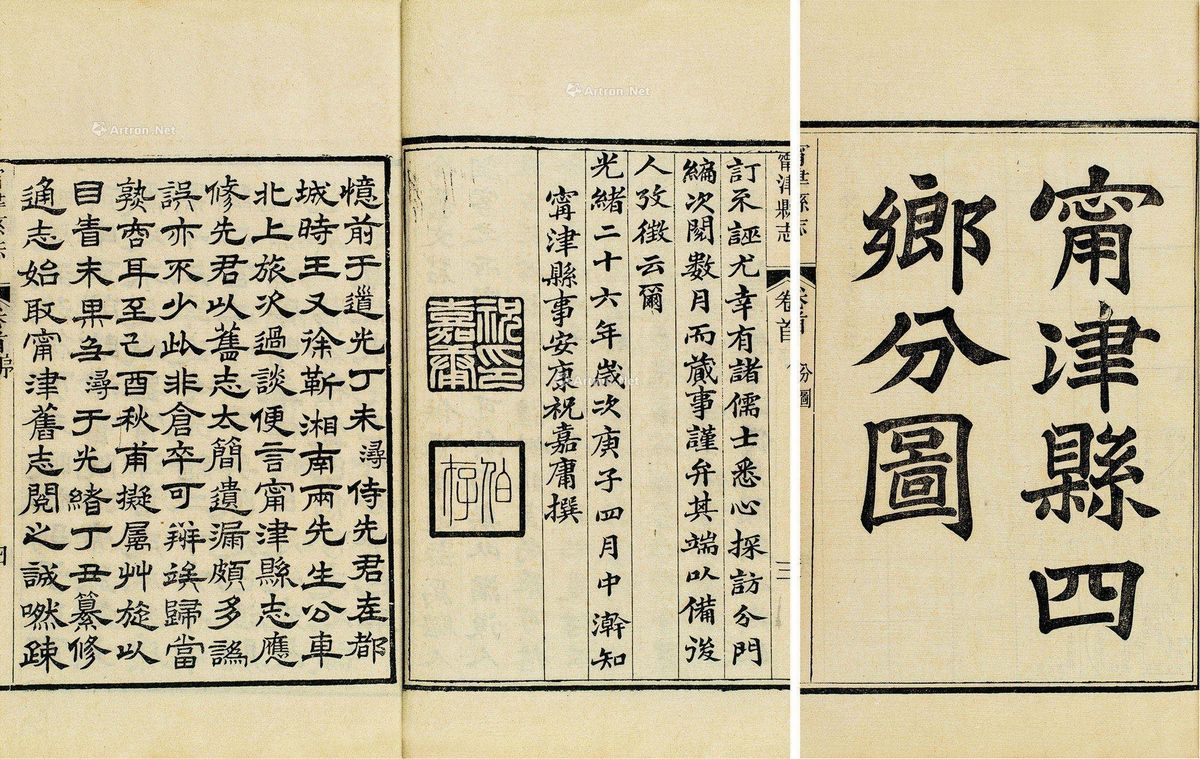 甯津縣四
鄉分圖
甯津縣志
卷首
分圖
三
訂不誣尤幸有諸儒士悉心採訪分門
編次閱數月而蕆事謹弁其端以備後
人攷徵云爾
光緒二十六年歲次庚子四月中澣知
甯津縣事安康祝嘉庸撰
祝印嘉庸
伯存
憶前于道光丁未潯侍先君在都
城時王又徐靳湘南兩先生公車
北上旅次過談便言甯津縣志應
修先君以舊志太簡遺漏頗多譌
誤亦不少此非倉卒可辦竢歸當
熟商耳至己酉秋甫擬屬艸旋以
目眚未果刍潯于光緒丁丑纂修
通志始取甯津舊志閱之誠嘫踈
Artron.Net
Artron.Net
Artron.Net